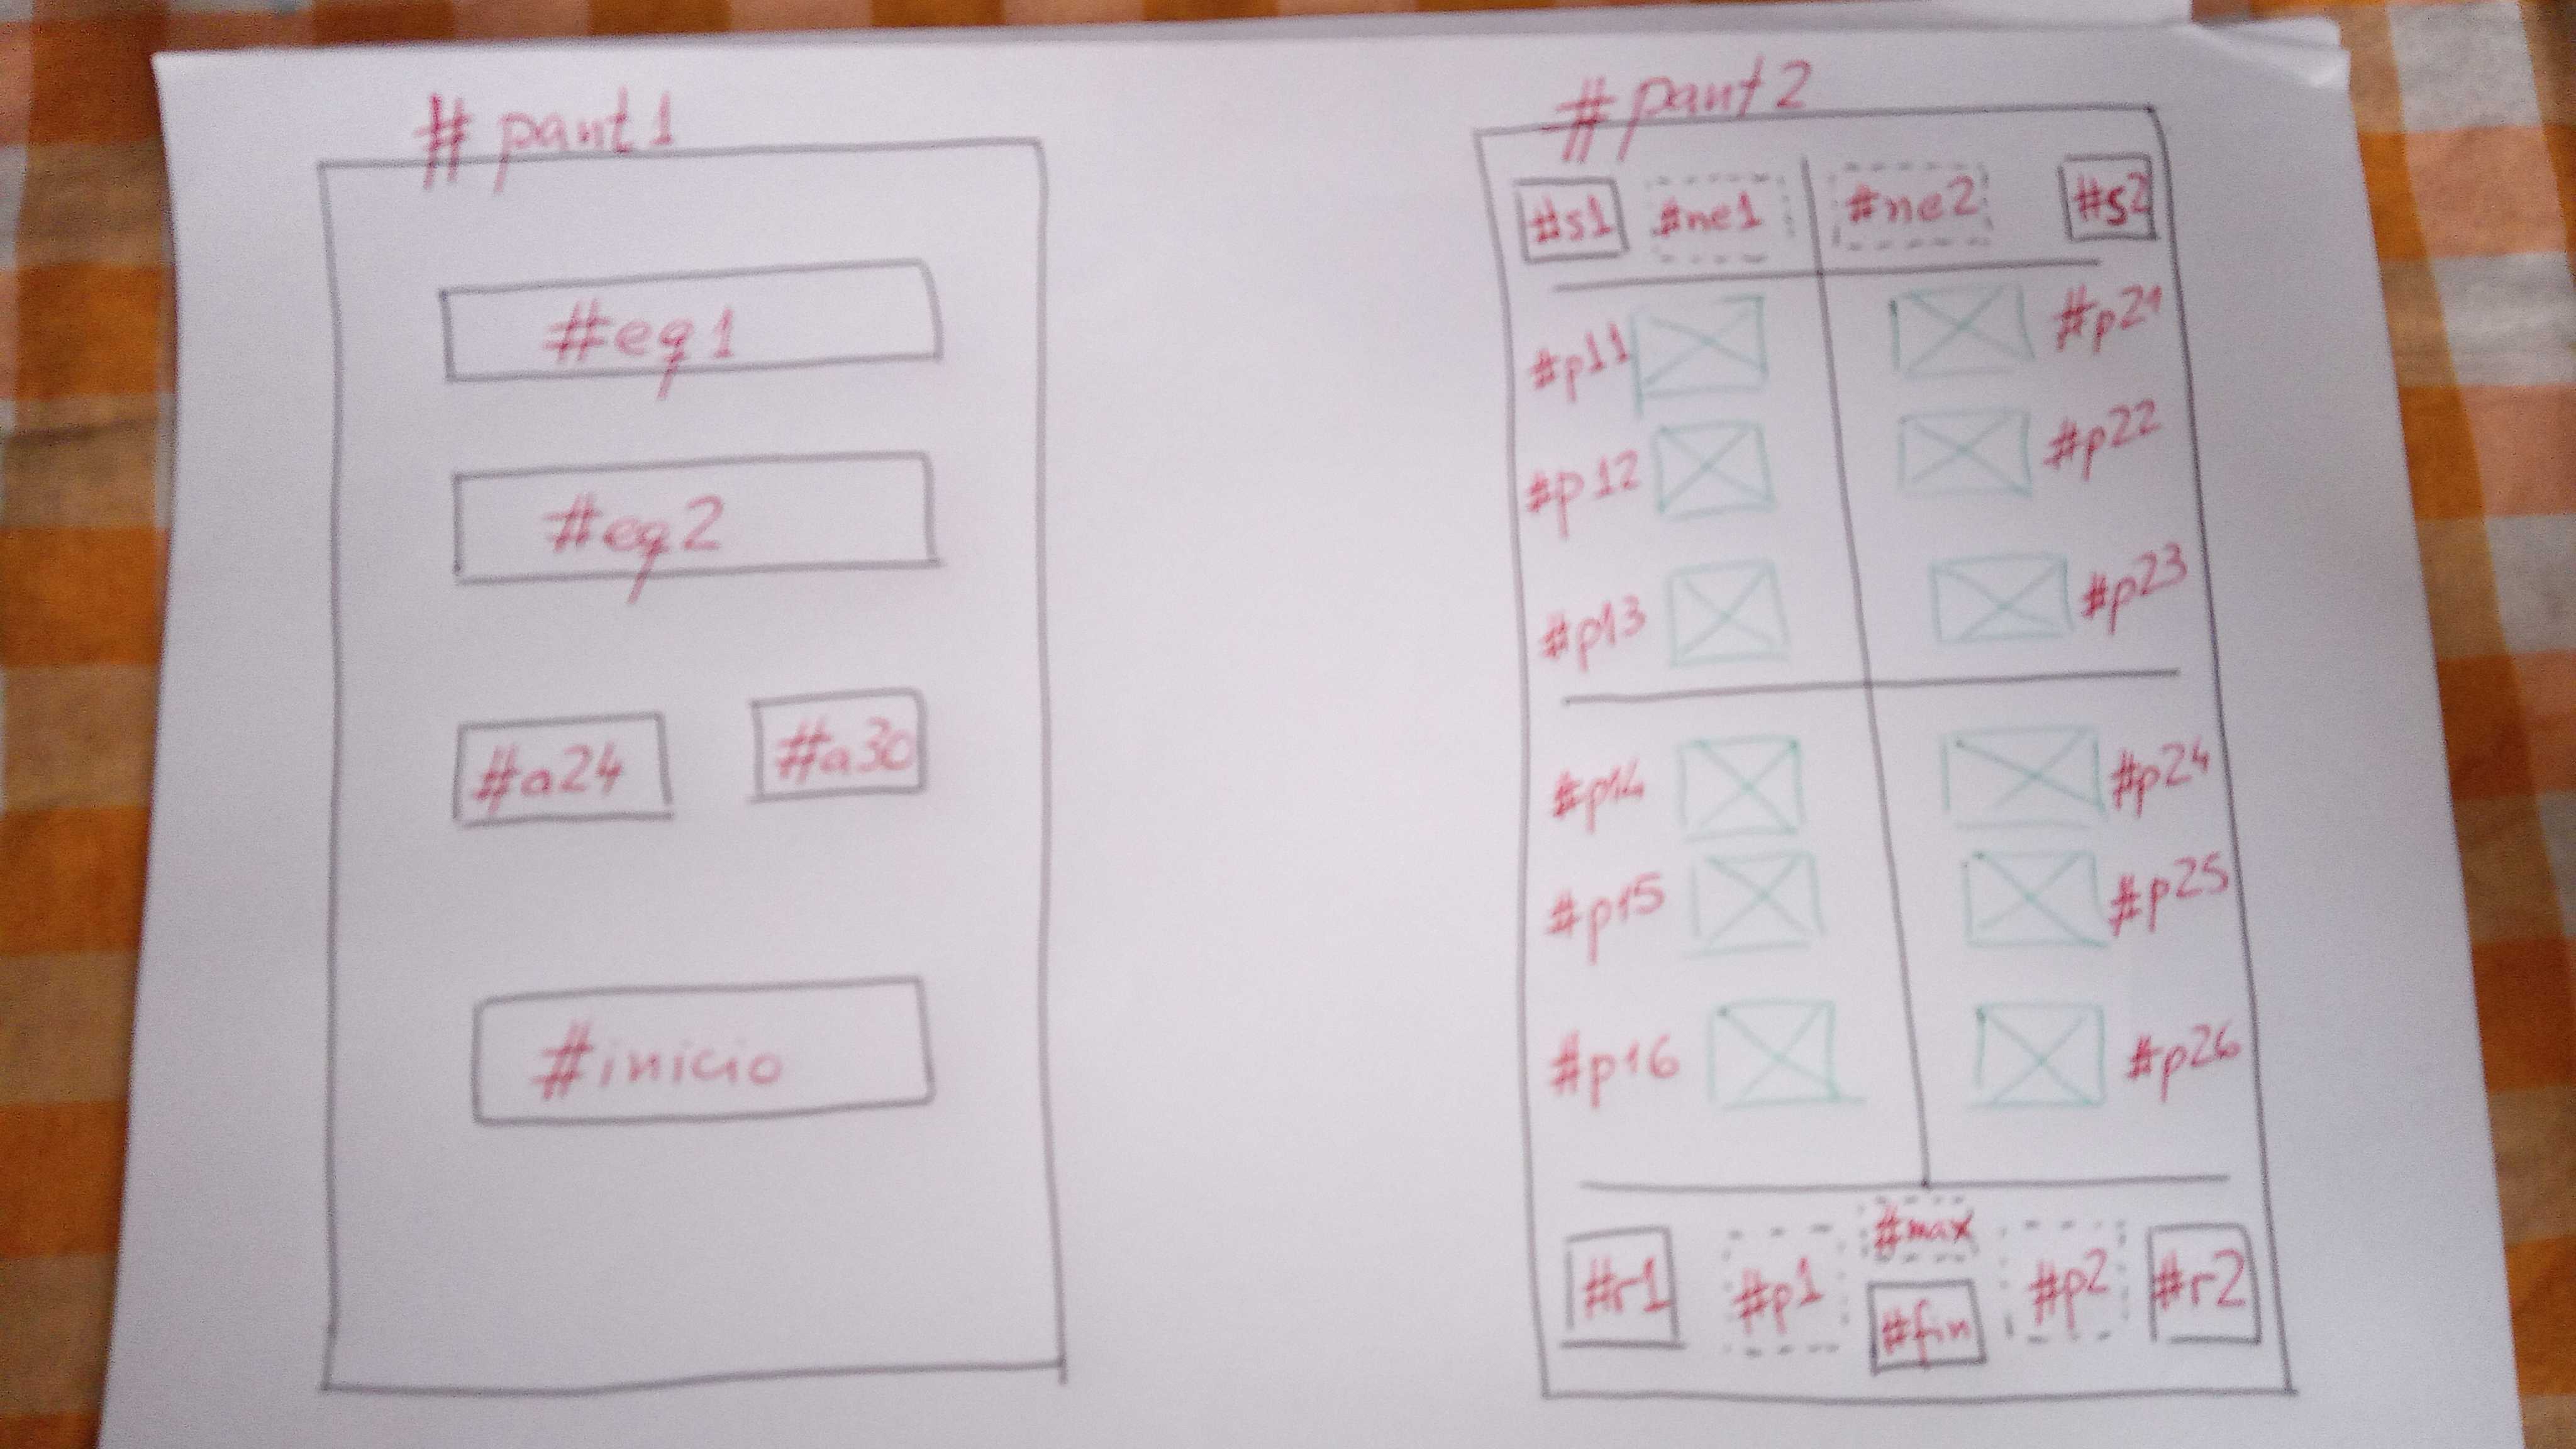 #pant1
#eq1
#eq2
#a24 #a30
#inicio
#pant2
#s1 #ne1 #ne2 #s2
#p11 #p21
#p12 #p22
#p13 #p23
#p14 #p24
#p15 #p25
#p16 #p26
#max
#r1 #p1 #fin #p2 #r2